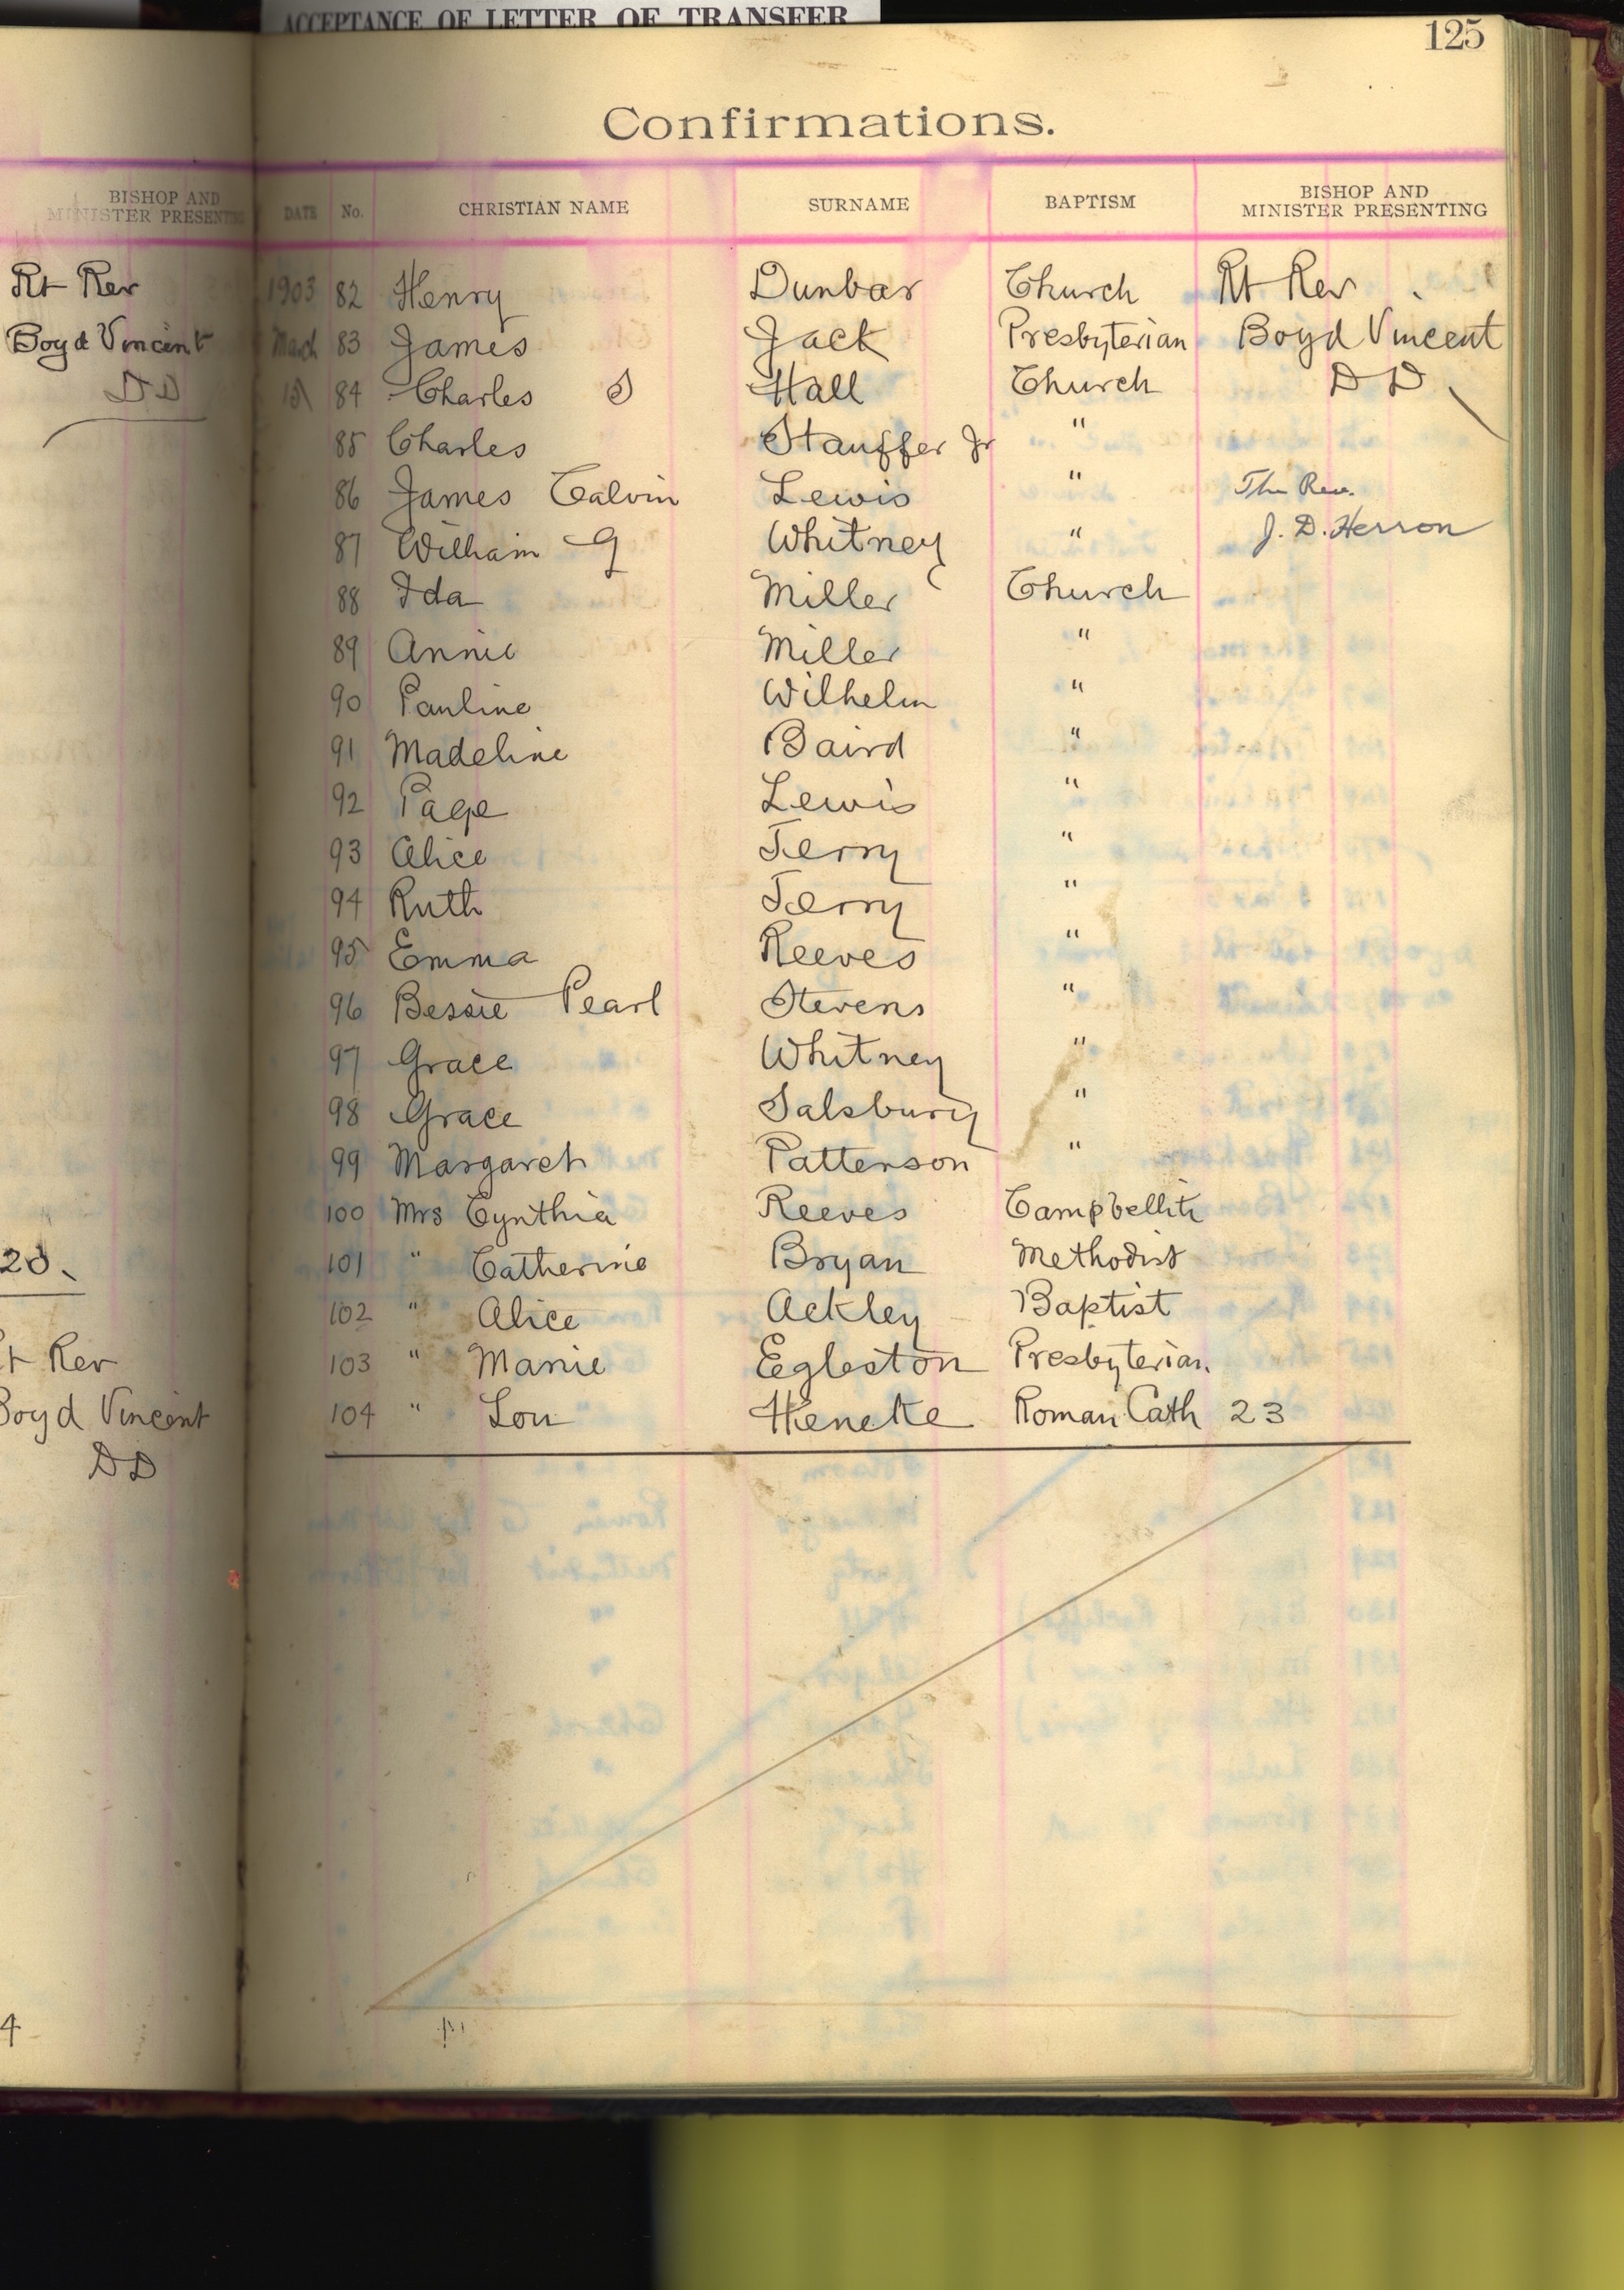 ACCEPTANCE OF LETTER OF TRANSFER
125
Confirmations.
BISHOP AND
MINISTER PRESENTING
Rt Rev
Boyd Vincent
DD
23.
Rt Rev
Boyd Vincent
DD
4
DATE No. CHRISTIAN NAME SURNAME BAPTISM BISHOP AND MINISTER PRESENTING
1903 82 Henry Dunbar Church Rt Rev
March 83 James Jack Presbyterian Boyd Vincent
84 Charles S Hall Church D D
85 Charles Stauffer Jr "
86 James Calvin Lewis " The Rev.
87 William G Whitney " J. D. Herron
88 Ida Miller Church
89 Annie Miller "
90 Pauline Wilhelm "
91 Madeline Baird "
92 Page Lewis "
93 Alice Terry "
94 Ruth Terry "
95 Emma Reeves "
96 Bessie Pearl Stevens "
97 Grace Whitney "
98 Grace Salsbury "
99 Margaret Patterson "
100 Mrs Cynthia Reeves Campbellite
101 " Catherine Bryan Methodist
102 " Alice Ackley Baptist
103 " Mamie Egleston Presbyterian
104 " Lou Heneke Roman Cath 23